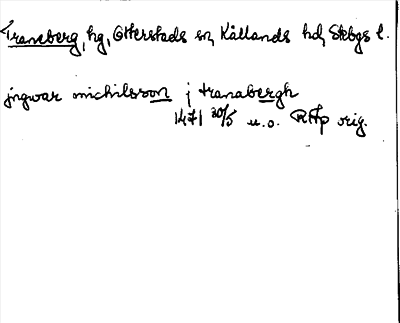 Traneberg, hg, Otterstads sn, Kållands hd, Skbgs l.
jngwar michilsson j tranabergh
1471 30/5 u.o. RAp orig.